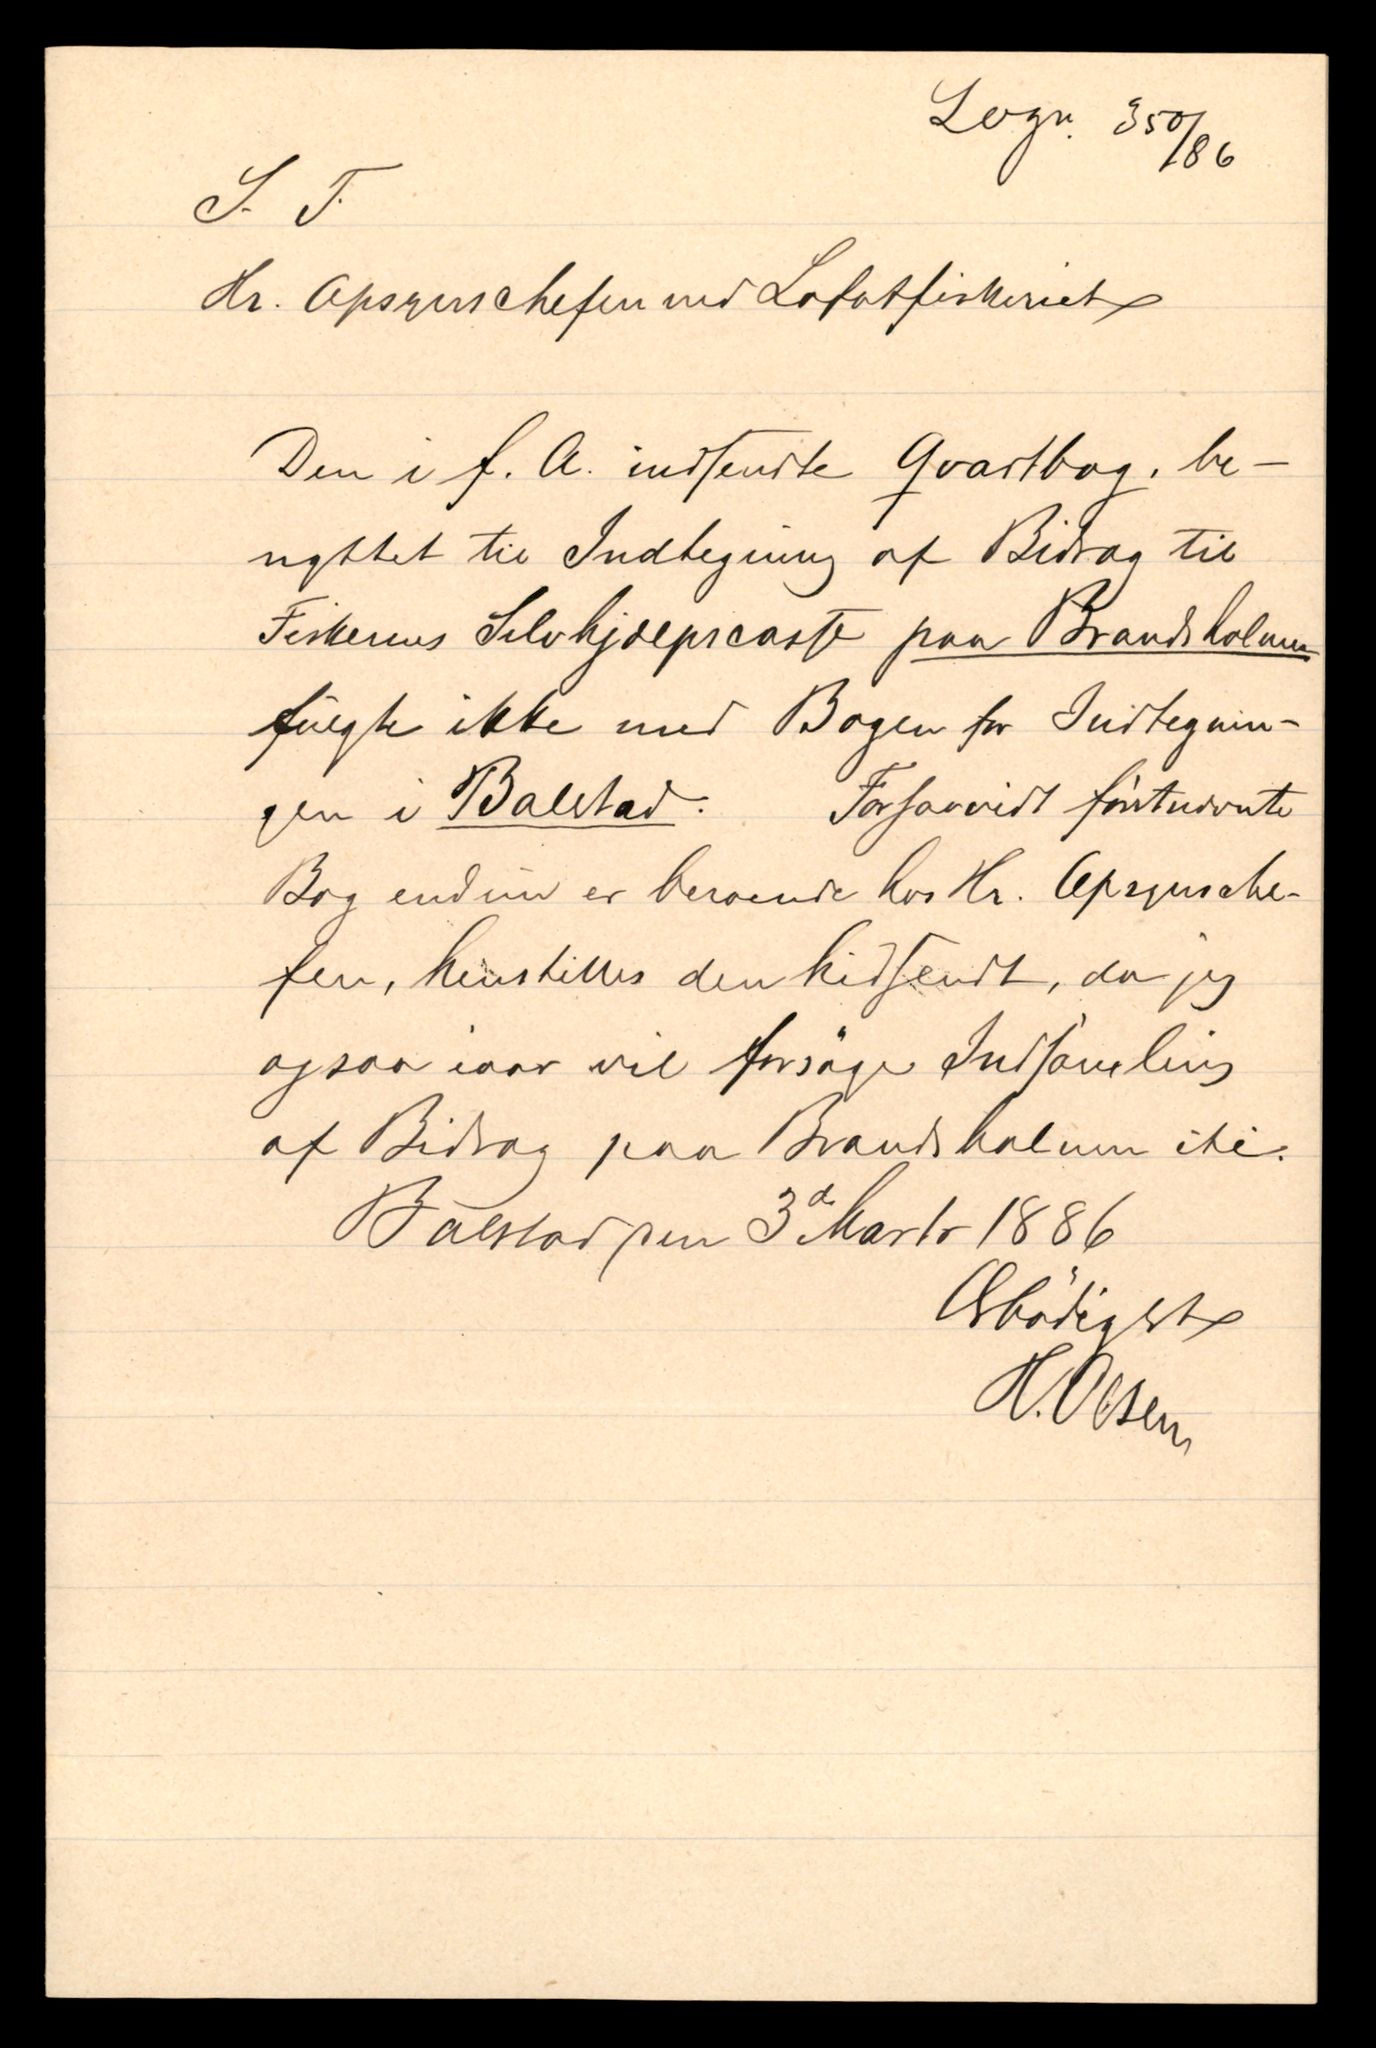 Lognr. 350/86
S. T.
Hr. Opsynschefen ved Lofotfiskeriet
Den i f. A. indsendte Qvartbog, be-
nyttet til Indtegning af Bidrag til
Fiskernes Selvhjælpscasse paa Brandsholmen
fulgte ikke med Bogen for Indtegnin-
gen i Balstad. Forsaavidt förstnævnte
Bog endnu er beroende hos Hr. Opsynsche-
fen, henstilles den hidsendt, da jeg
ogsaa iaar vil forsöge Indsamling
af Bidrag paa Brandsholmen
Balstad den 3d Marts 1886
Ærbödigst
H. Olsen